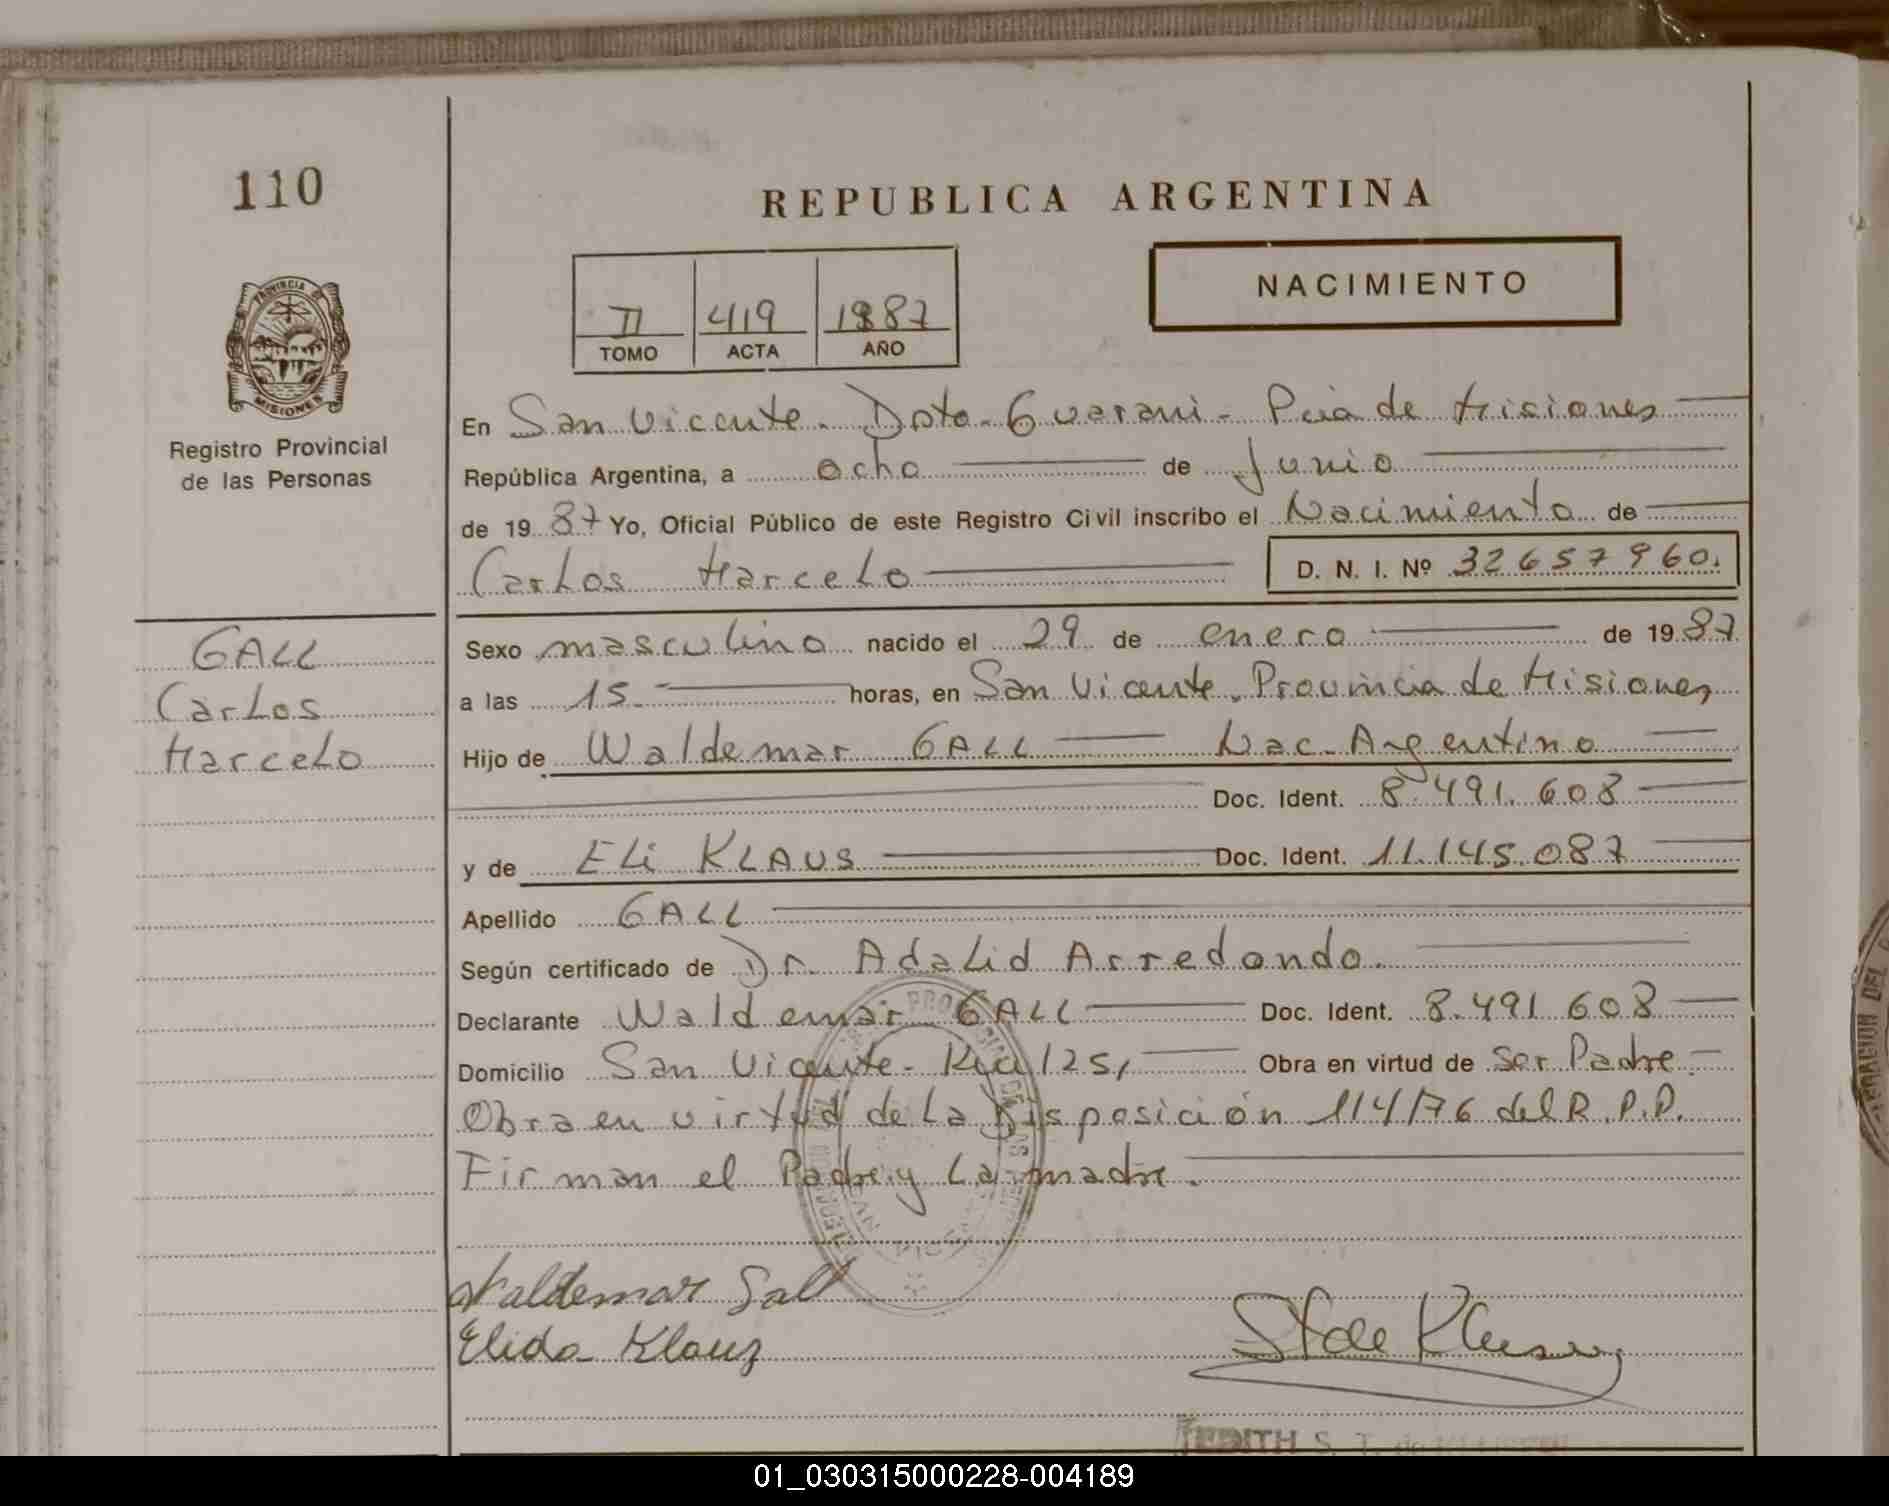 110
REPUBLICA ARGENTINA
NACIMIENTO
II 419 1987
TOMO ACTA AÑO
PROVINCIA DE
MISIONES
Registro Provincial
de las Personas
En San Vicente. Dpto. Guarani - Pcia de Misiones
República Argentina, a ocho de Junio
de 1987 Yo, Oficial Público de este Registro Civil inscribo el Nacimiento de
Carlos Marcelo D. N. I. Nº 32657960.
GALL
Carlos
Marcelo
Sexo masculino nacido el 29 de enero de 1987
a las 15. horas, en San Vicente. Provincia de Misiones
Hijo de Waldemar GALL Nac. Argentino
Doc. Ident. 8.491.608
y de Eli KLAUS Doc. Ident. 11.145.087
Apellido GALL
Según certificado de Dr. Adalid Arredondo.
Declarante Waldemar GALL Doc. Ident. 8.491.608
Domicilio San Vicente - Km 125, Obra en virtud de Ser Padre.
Obra en virtud de la Disposición 114/76 del R.P.P.
Firman el Padre y La madre.
Waldemar Gall
Elida Klauz
EDITH S. T. de
01_030315000228-004189